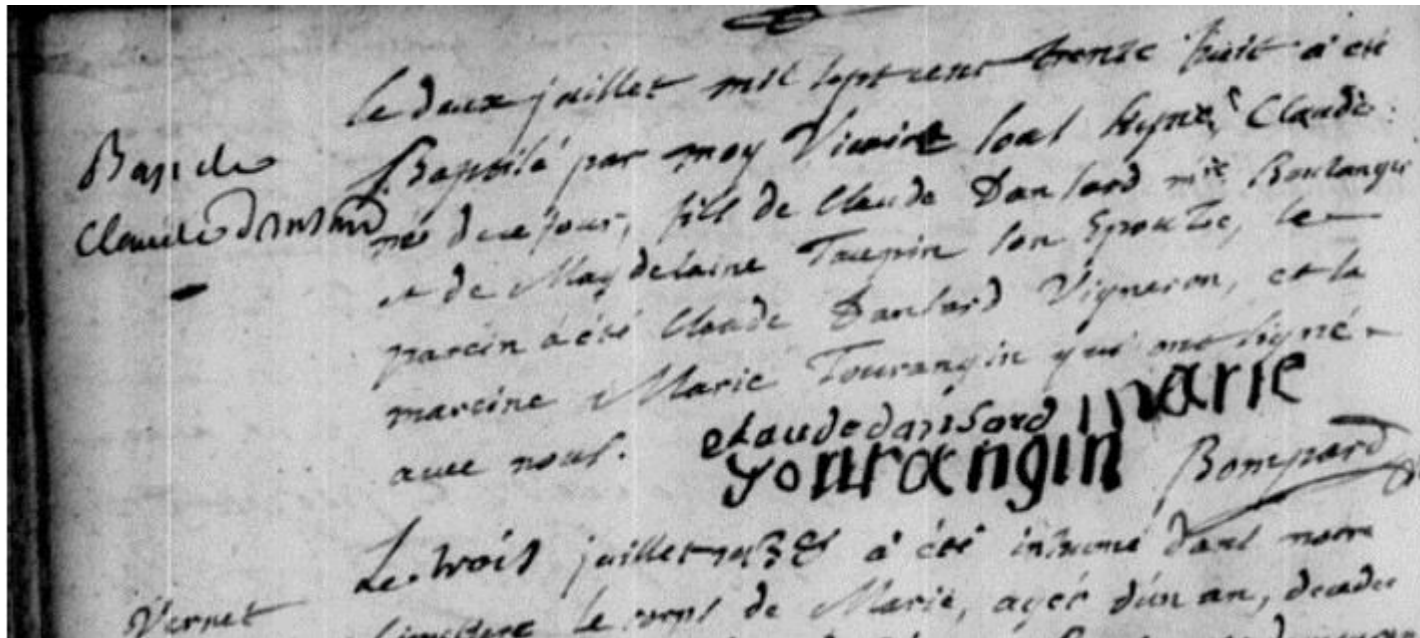 Bap de
Claude Dansard
le deux juillet mil sept cens trente huit a été
Baptisé par moy Vicaire sous signé, Claude
né de ce jour, fils de Claude Dansard mtre Boulanger
et de Magdelaine Taupin son Epouze, le
parein a été Claude Dansard Vigneron, et la
mareine Marie Tourangin qui ont signé
avec nous.
claude dansard marie
tourangin Bompard
Le trois juillet 1738 a été inhumé dans notre
Vernet
Cimetiere le corps de Marie, agée d'un an, decedée